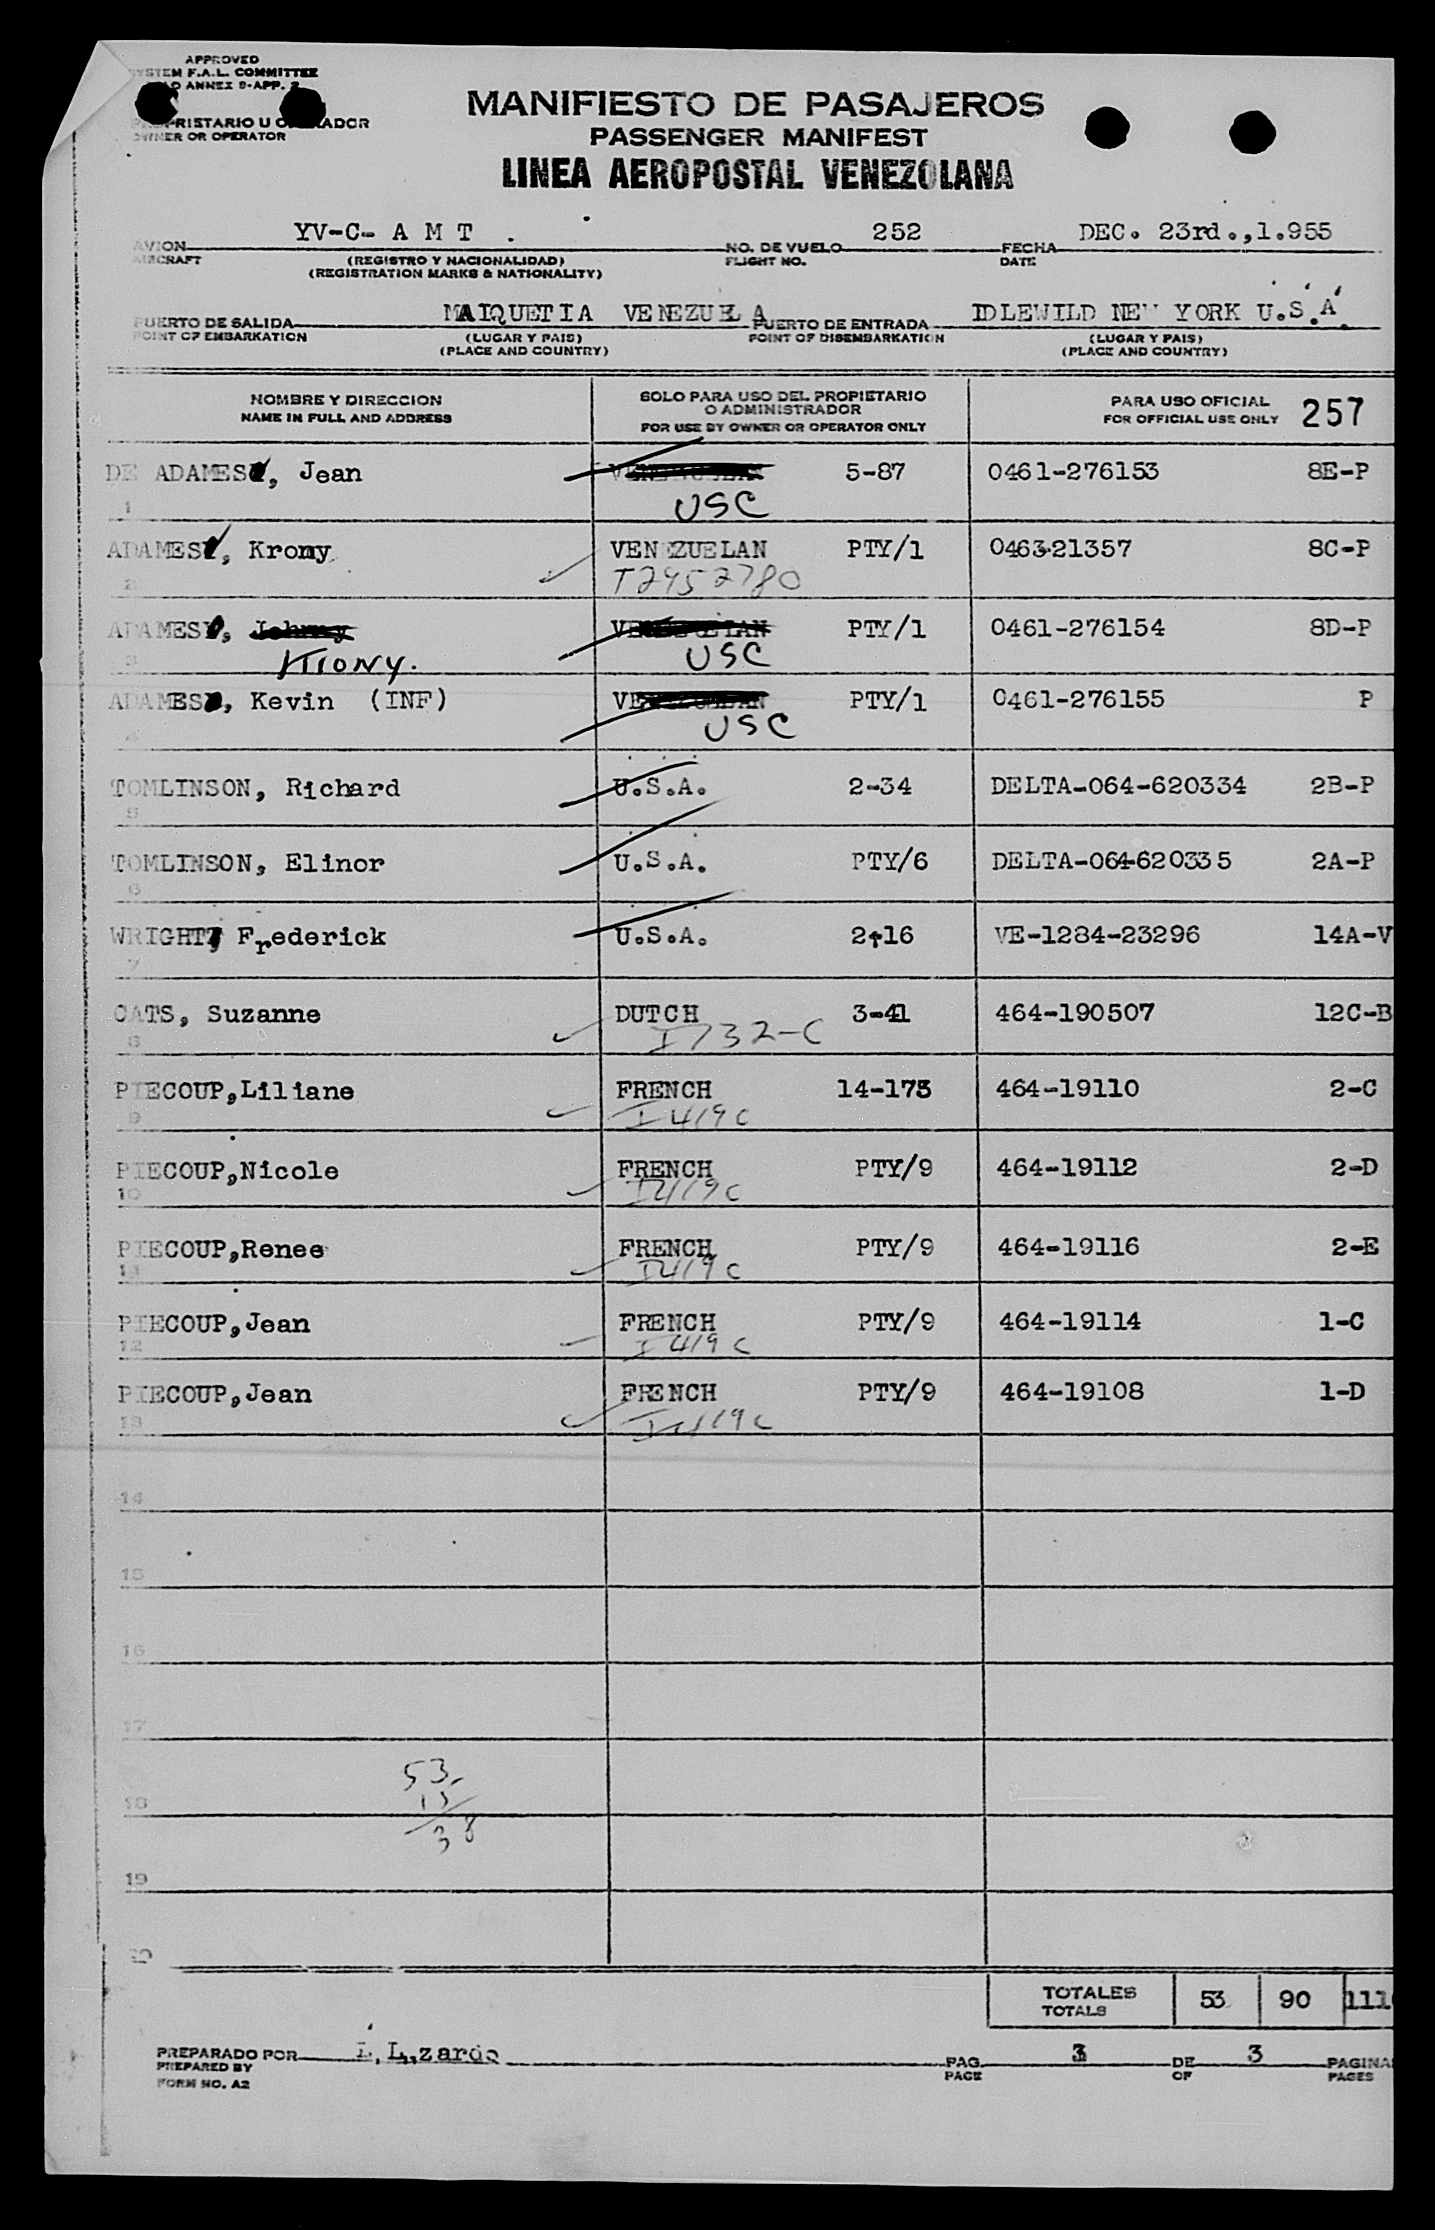 APPROVED
SYSTEM F.A.L. COMMITTEE
ANNEX 9-APP. 2
PROPRIETARIO U OPERADOR
OWNER OR OPERATOR
MANIFIESTO DE PASAJEROS
PASSENGER MANIFEST
LINEA AEROPOSTAL VENEZOLANA
AVION YV-C- A M T . NO. DE VUELO 252 FECHA DEC. 23rd.,1.955
AIRCRAFT (REGISTRO Y NACIONALIDAD) FLIGHT NO. DATE
(REGISTRATION MARKS & NATIONALITY)
PUERTO DE SALIDA MAIQUETIA VENEZUELA PUERTO DE ENTRADA IDLEWILD NEW YORK U.S.A.
POINT OF EMBARKATION (LUGAR Y PAIS) POINT OF DISEMBARKATION (LUGAR Y PAIS)
(PLACE AND COUNTRY) (PLACE AND COUNTRY)
NOMBRE Y DIRECCION SOLO PARA USO DEL PROPIETARIO PARA USO OFICIAL 257
NAME IN FULL AND ADDRESS O ADMINISTRADOR FOR OFFICIAL USE ONLY
FOR USE BY OWNER OR OPERATOR ONLY
DE ADAMES, Jean VENEZUELAN 5-87 0461-276153 8E-P
1 USC
ADAMES, Krony VENEZUELAN PTY/1 0463-21357 8C-P
2 T2952780
ADAMES, Johnny VENEZUELAN PTY/1 0461-276154 8D-P
3 KRONY. USC
ADAMES, Kevin (INF) VENEZUELAN PTY/1 0461-276155 P
4 USC
TOMLINSON, Richard U.S.A. 2-34 DELTA-064-620334 2B-P
5
TOMLINSON, Elinor U.S.A. PTY/6 DELTA-064-620335 2A-P
6
WRIGHT, Frederick U.S.A. 2-16 VE-1284-23296 14A-V
7
CATS, Suzanne DUTCH 3-41 464-190507 12C-B
8 I732-C
PIECOUP,Liliane FRENCH 14-175 464-19110 2-C
9 I419C
PIECOUP,Nicole FRENCH PTY/9 464-19112 2-D
10 I419C
PIECOUP,Renee FRENCH PTY/9 464-19116 2-E
11 I419C
PIECOUP,Jean FRENCH PTY/9 464-19114 1-C
12 I419C
PIECOUP,Jean FRENCH PTY/9 464-19108 1-D
13 I419C
14
15
16
17
53
18 15
38
19
20
TOTALES 53 90 111
TOTALS
PREPARADO POR L. Lizardo PAG. 3 DE 3 PAGINAS
PREPARED BY PAGE OF PAGES
FORM NO. A2